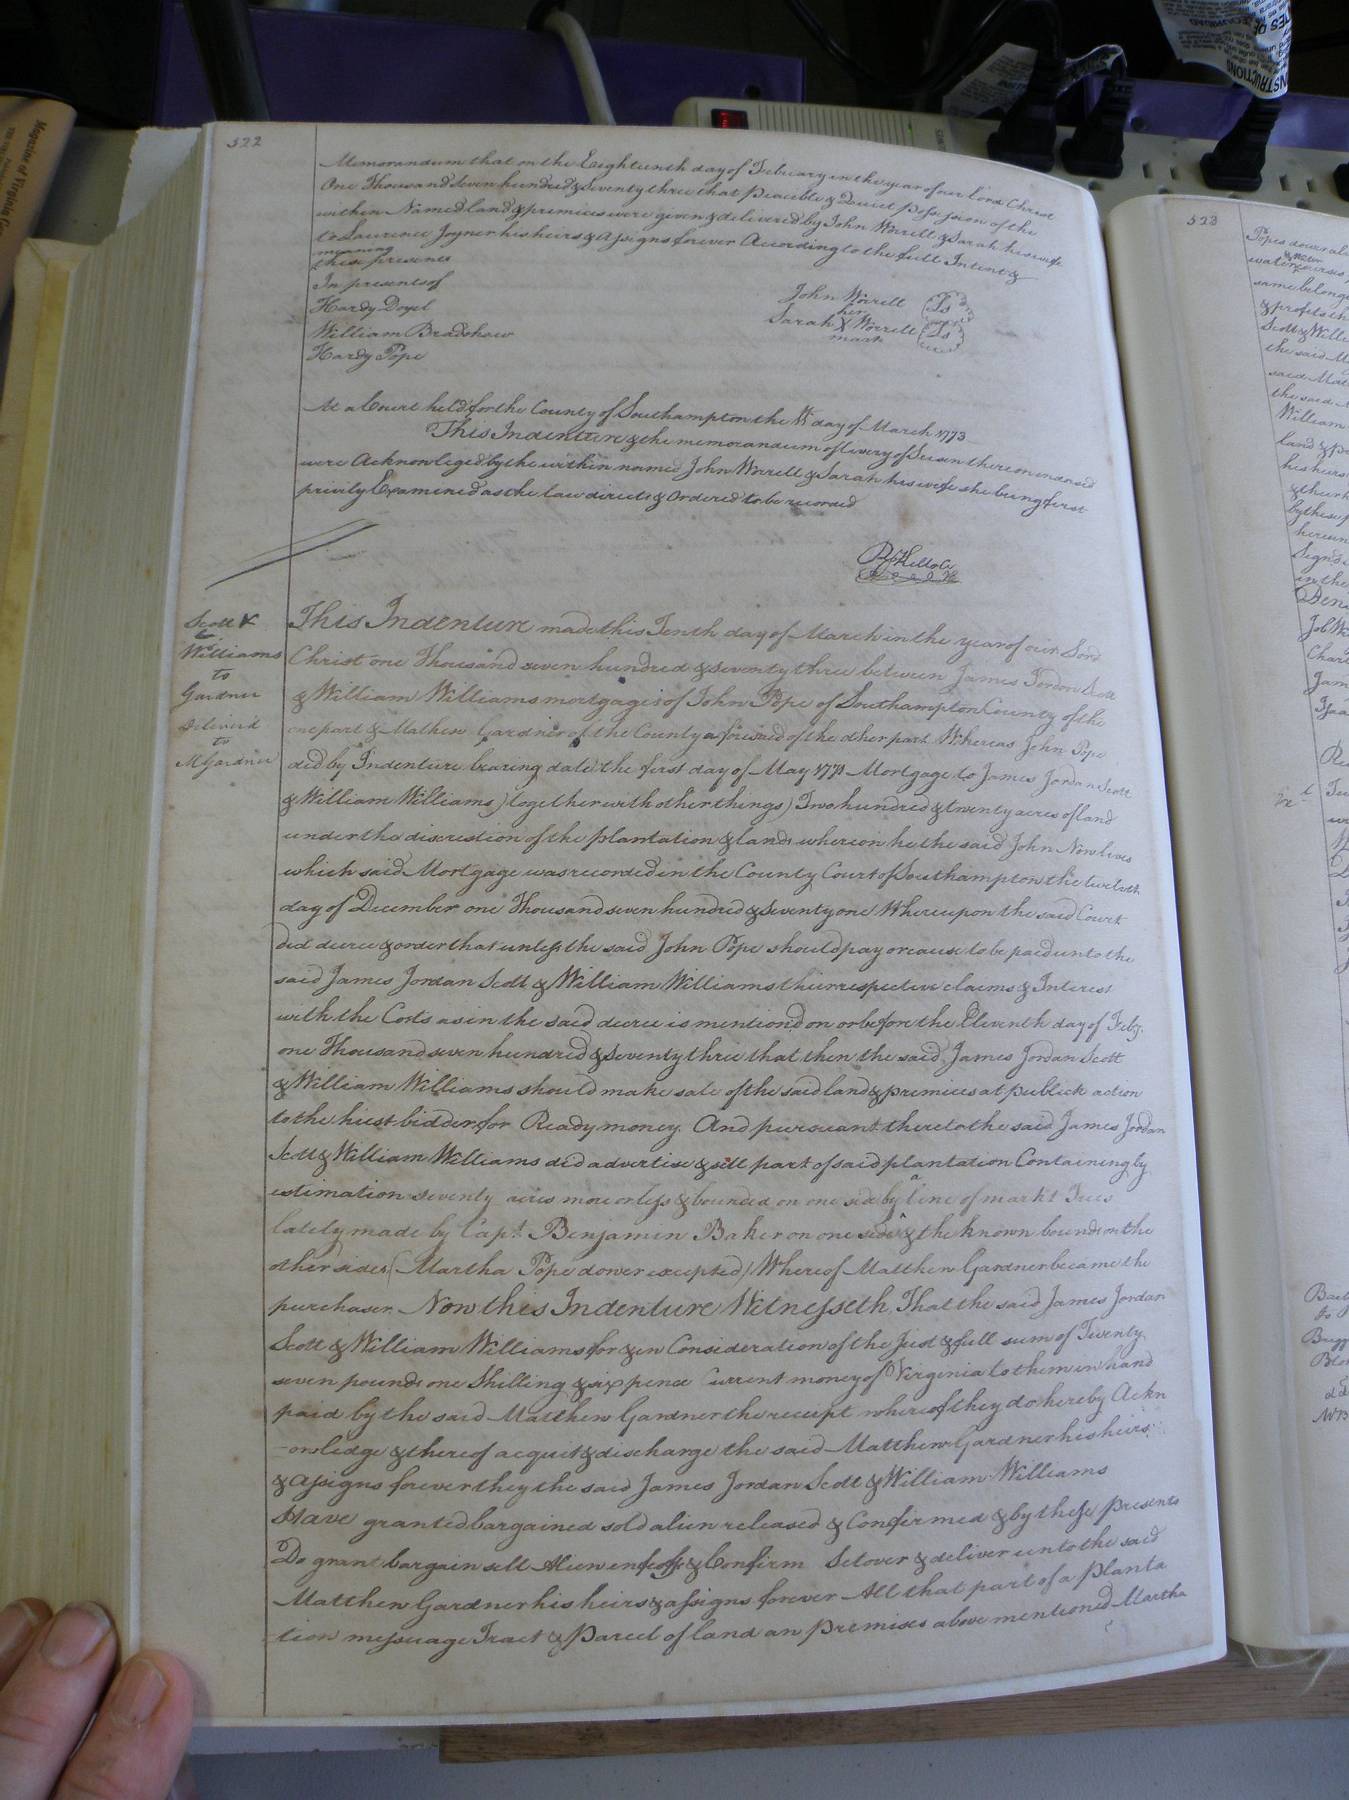 522
Memorandum that on the Eighteenth day of February in the year of our Lord Christ
One Thousand seven hundred & Seventy three that Peacible & Quiet possession of the
within Named land & premices were given & delivered by John Worrell & Sarah his wife
to Laurence Joyner his heirs & assigns forever According to the full Intent &
meaning
these presents
In presents of
Hardy Doyel
William Bradshaw
Hardy Pope
John Worrell Ls
her
Sarah X Worrell Ls
mark
At a Court held for the County of Southampton the day of March 1773
This Indenture & the memorandum of livery of Seisen thereon endorsed
were Acknowleged by the within named John Worrell & Sarah his wife she being first
privily Examined as the law directs & Ordered to be recorded
Scott &
Williams
to
Gardner
Deliverd
to
M Gardner
This Indenture made this Tenth day of March in the year of our Lord
Christ one Thousand seven hundred & seventy three between James Jordon Scott
& William Williams mortgages of John Pope of Southampton County of the
one part & Mathew Gardner of the County aforesaid of the other part Whereas John Pope
did by Indenture bearing date the first day of May 1771 Mortgage to James Jordan Scott
& William Williams) together with other things) Two hundred & twenty acres of land
under the discrestion of the plantation & lands whereon he the said John Now lives
which said Mortgage was recorded in the County Court of Southampton the twelveth
day of December one Thousand seven hundred & Seventy one Whereupon the said Court
did decree & order that unless the said John Pope should pay or cause to be paid unto the
said James Jordan Scott & William Williams their respective claims & Interest
with the Costs as in the said decree is mentiond on or before the Eleventh day of Feby.
one Thousand seven hundred & Seventy three that then the said James Jordan Scott
& William Williams should make sale of the said land & premices at publick action
to the hiest bidder for Ready money. And pursuant thereto the said James Jordan
Scott & William Williams did advertise & sell part of said plantation Containing by
estimation seventy acres more or less & bounded on one sid by a line of markt Trees
lately made by Capt. Benjamin Baker on one side & the known bounds on the
other sides (Martha Pope dower excepted) Whereof Matthew Gardner became the
purchaser. Now this Indenture Witnesseth That the said James Jordan
Scott & William Williams for & in Consideration of the Just & full sum of Twenty
seven pounds one Shilling & six pence Current money of Virginia to them in hand
paid by the said Matthew Gardner the receipt whereof they do hereby Ackn
-owledge & thereof acquet & discharge the said Matthew Gardner his heirs
& assigns forever they the said James Jordan Scott & William Williams
Have granted bargained sold alien released & Confirmed & by these presents
Do grant bargain sell Alien enfeoffe & Confirm Setover & deliver unto the said
Matthew Gardner his heirs & assigns forever All that part of a Planta
tion messuage Tract & Parcel of land an Premises above mentioned Martha
523
Popes dower
& Water
same belong
& profits th
Scott & Willi
the said M
said Mat
the said
William
land &
his heirs
by these
Job
James